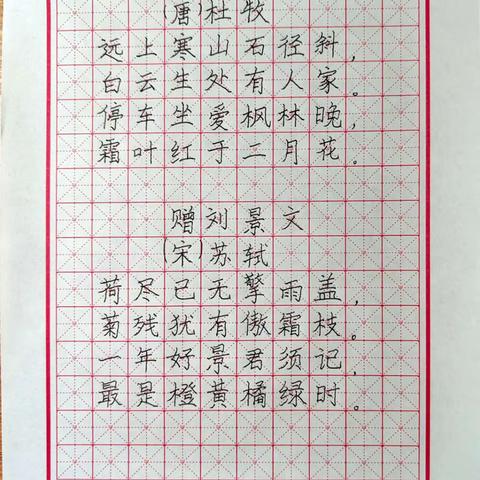 (唐)杜牧
远上寒山石径斜,
白云生处有人家。
停车坐爱枫林晚,
霜叶红于二月花。
赠刘景文
(宋)苏轼
荷尽已无擎雨盖,
菊残犹有傲霜枝。
一年好景君须记,
最是橙黄橘绿时。